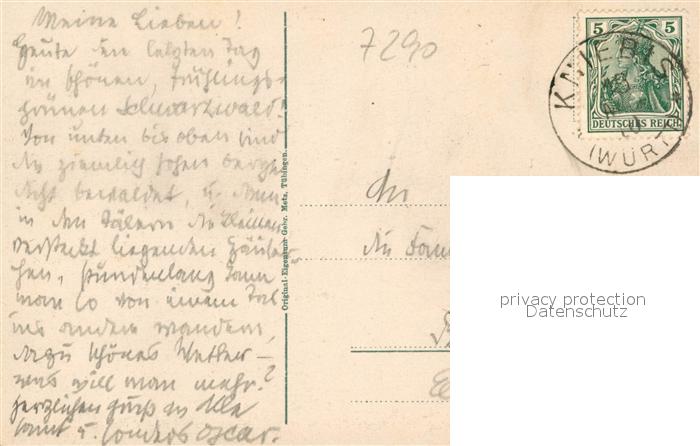 Meine Lieben!
Heute den letzten Tag
im schönen, frühlings-
grünen Schwarzwald!
Von unten bis oben sind
die ziemlich hohen Berge
dicht bewaldet, u. dann
in den Tälern die kleinen
versteckt liegenden Häuser-
chen, stundenlang kann
man so von einem Tal
ins andere wandern,
dazu schönes Wetter –
was will man mehr?
Herzlichen Gruß an Alle
samt u. sonders Oscar.
Original-Eigentum Gebr. Metz, Tübingen.
7290
5 5
DEUTSCHES REICH
KNIEBIS
(WÜRT
An
die Fam
privacy protection
Datenschutz